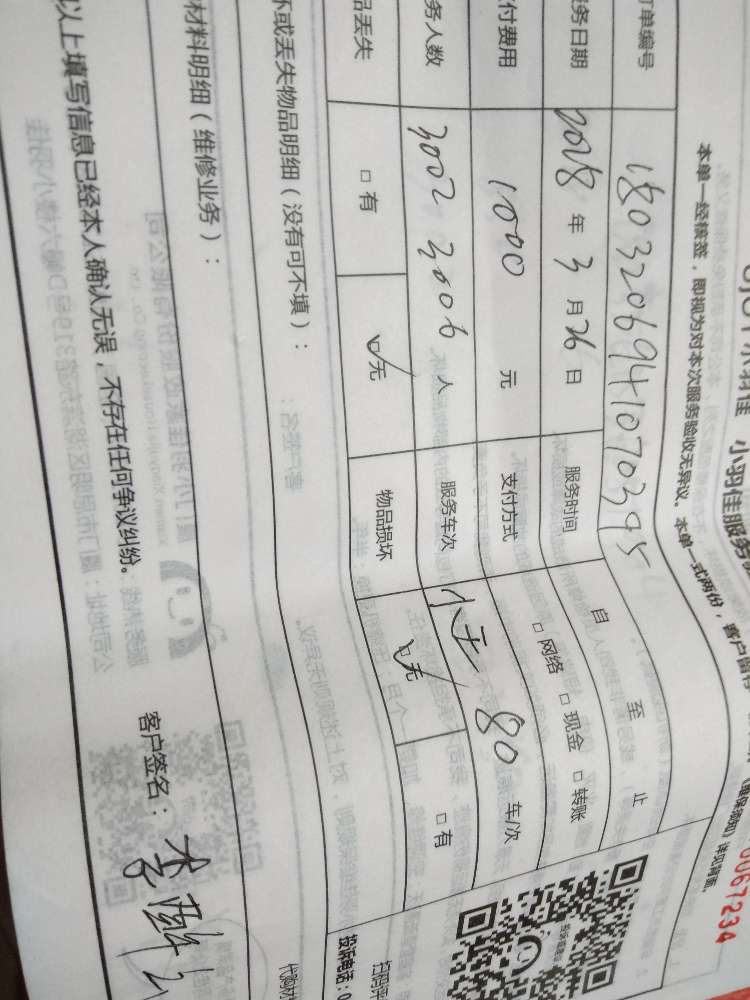 小羽佳 小羽佳服务
0067234
本单一经核签，即视为对本次服务验收无异议。本单一式两份，客户留存
《维保须知》详见背面。
订单编号 1803206941070395
服务日期 2018 年 3 月 26 日 服务时间 自 至 止
付费用 1000 元 支付方式 □ 网络 □ 现金 □ 转账
务人数 3002 3006 人 服务车次 80 车/次
品丢失 □ 有 □无 物品损坏 □无 □ 有
坏或丢失物品明细（没有可不填）：
材料明细（维修业务）：
以上填写信息已经本人确认无误，不存在任何争议纠纷。
客户签名：李
投诉电话：0
扫码评